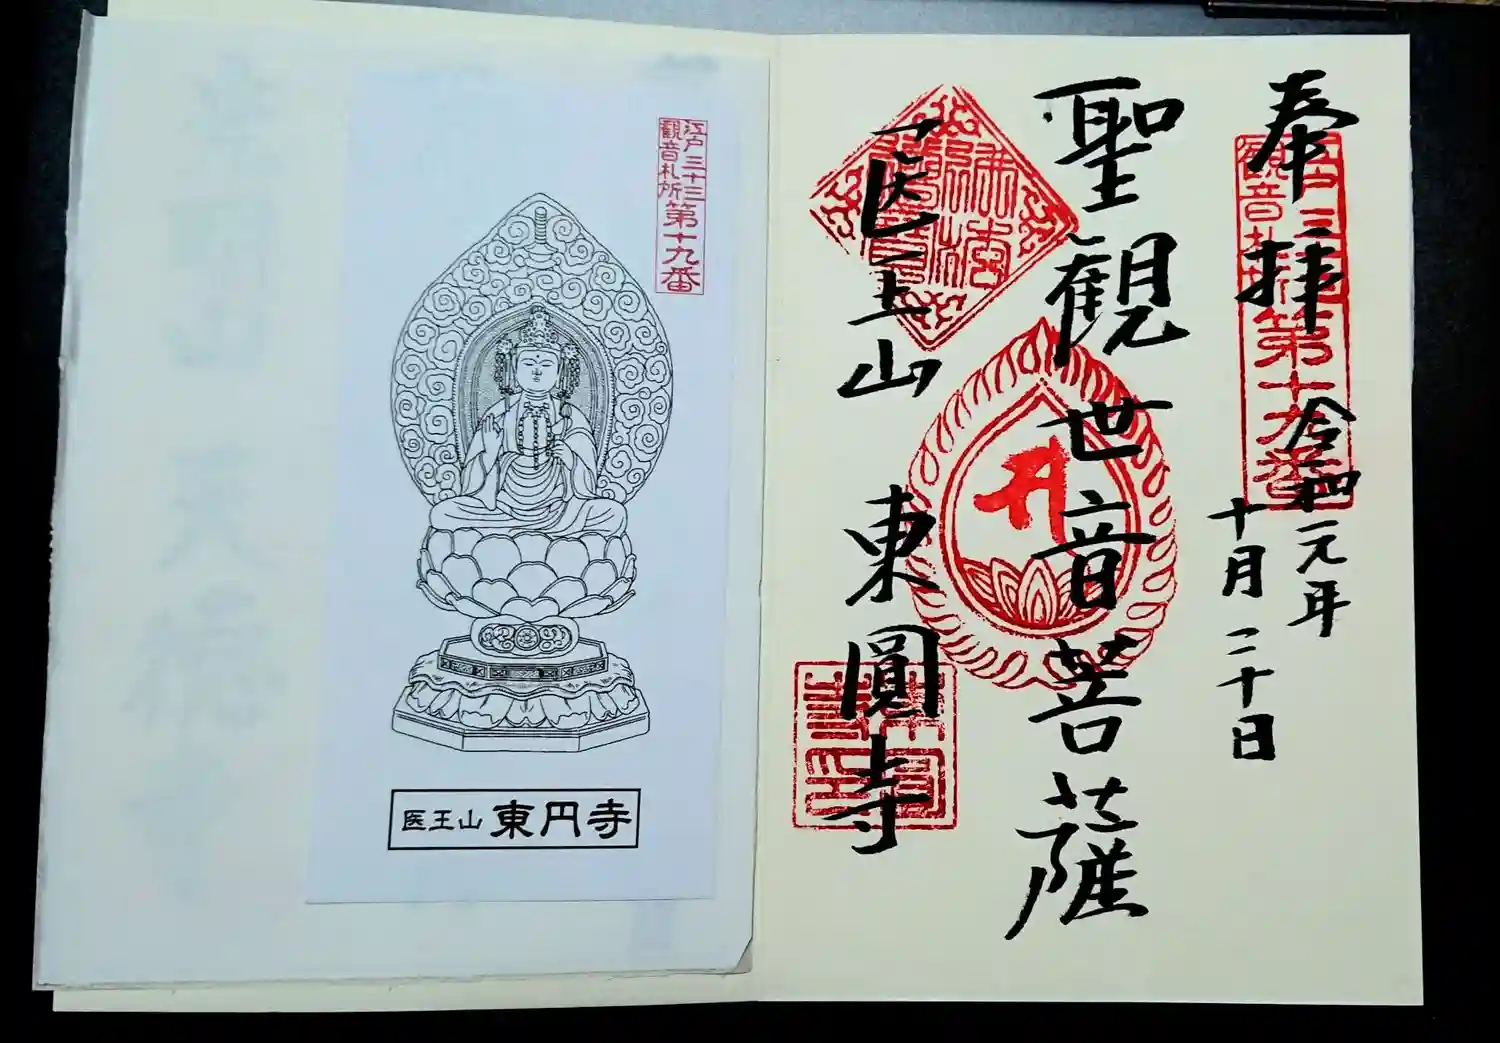 奉拝
江戸三十三
観音札所
第十九番
令和元年
十月二十日
聖観世音菩薩
医王山 東圓寺
江戸三十三
観音札所
第十九番
医王山 東円寺